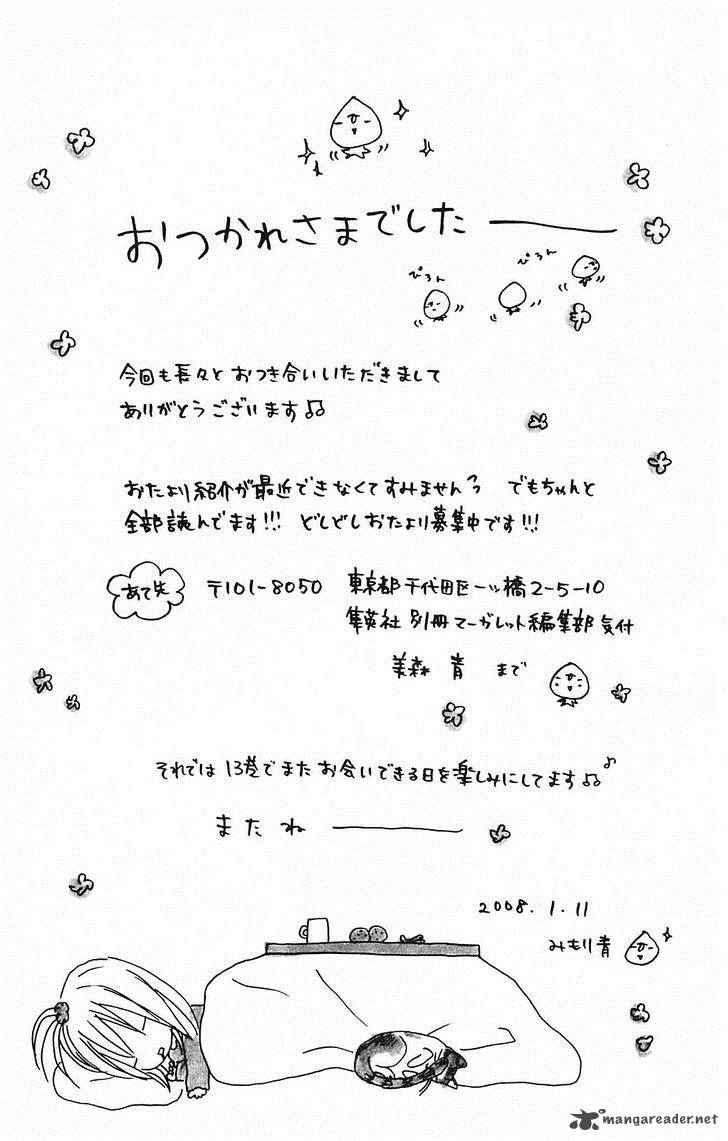 おつかれさまでした――
ぴょん
ぴょん
今回も長々とおつき合いいただきまして
ありがとうございます♫
おたより紹介が最近できなくてすみません でもちゃんと
全部読んでます!!! どしどしおたより募集中です!!!
あて先
〒101-8050 東京都千代田区一ツ橋2-5-10
集英社 別冊マーガレット編集部気付
美森 青 まで
それでは13巻でまたお会いできる日を楽しみにしてます♫♪
またね――
2008.1.11
みもり青
mangareader.net